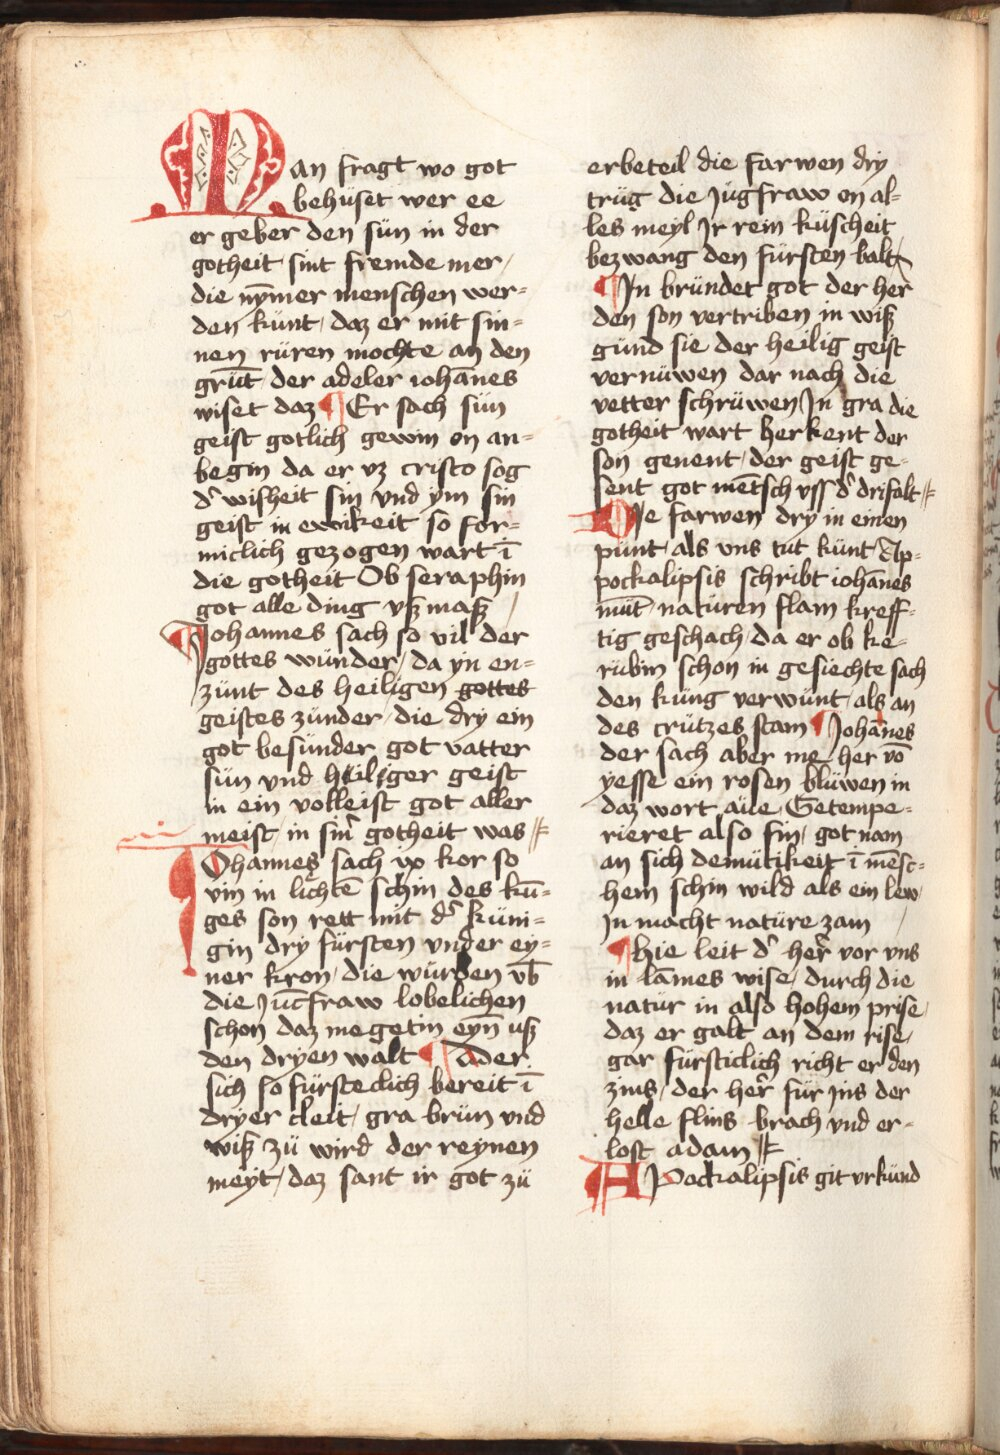 Man fragt wo got
behüset wer ee
er geber den sün in der
gotheit sint fremde mer /
die nȳmer menschen wer=
den künt / daz er mit sin=
nen rüren mochte an den
grūt / der adeler iohānes
wiset daz ¶ Er sach sün
geist gotlich gewin on an=
begin da er vz cristo sog
d' wisheit sin vnd ym sin
geist in ewikeit so for=
miclich gezogen wart ī
die gotheit Ob seraphin
got alle ding vß maß /
Johannes sach so vil der
gottes wünder / da yn en=
zünt des heiligen gottes
geistes zünder / die dry ein
got besünder got vatter
sün vnd heiliger geist
in ein volleist got aller
meist / in sin' gotheit was
Johannes sach ix kor so
vin in lichtē schin des kü=
ges son rett mit d' küni=
gin dry fürsten vnder ey=
ner kron / die würden vb
die Jūcfraw lobelichen
schon daz megetin eyn vß
den dryen walt ¶ Ader
sich so fürsteclich bereit ī
dryer cleit / gra brün vnd
wiß zü wird der reynen
meyt / daz sant ir got zü
erbeteil die farwen dry
trüg die Jügfraw on al=
les meyl Jr rein küscheit
bezwang den fürsten balt
¶ Jn bründet got der her
den son vertriben in wiß
gund sie der heilig geist
vernüwen dar nach die
vetter schrüwen Jn gra die
gotheit wart herkent der
son genent / der geist ge=
sent got mētsch vss d' drifalt
Die farwen dry in einen
punt / als vns tüt künt Ap=
pockalipsis schribt iohānes
mūt natüren flam kreff=
tig geschach / da er ob ke=
rubin schon in gesiechte sach
den küng verwünt / als an
des crützes stam ¶ Johānes
der sach aber me her vō
yesse ein rosen blüwen in
daz wort aue Getempe=
rieret also fin / got nam
an sich demütikeit ī mēsc=
hem schin wild als ein lew /
Jn macht natüre zam
¶ hie leit d' her vor vns
in lāmes wise / durch die
natur in also hohem prise /
daz er galt an dem rise /
gar fürsticlich richt er den
zins / der her für Jns der
helle flins brach vnd er=
lost adam
APockalipsis git vrkünd